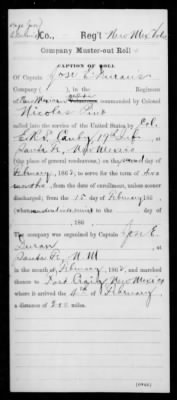 Co., Reg't New Mex Vols
Company Muster-out Roll
CAPTION OF ROLL
Of Captain Jose E. Durans
Company ( ), in the Regiment
of New Mexican commanded by Colonel
Nicolas Pino
called into the service of the United States by Col.
E.R.S. Canby 19th Inf. at
Santa Fe, New Mexico
(the place of general rendezvous), on the day of
February, 1862, to serve for the term of
months, from the date of enrollment, unless sooner
discharged; from the 15 day of February 186 ,
(when ) to the day of
, 186
The company was organized by Captain Jose E.
Duran
at Santa Fe, N. M
in the month of February, 1862, and marched
thence to Fort Craig, New Mexico
where it arrived the 4th of February,
a distance of miles.